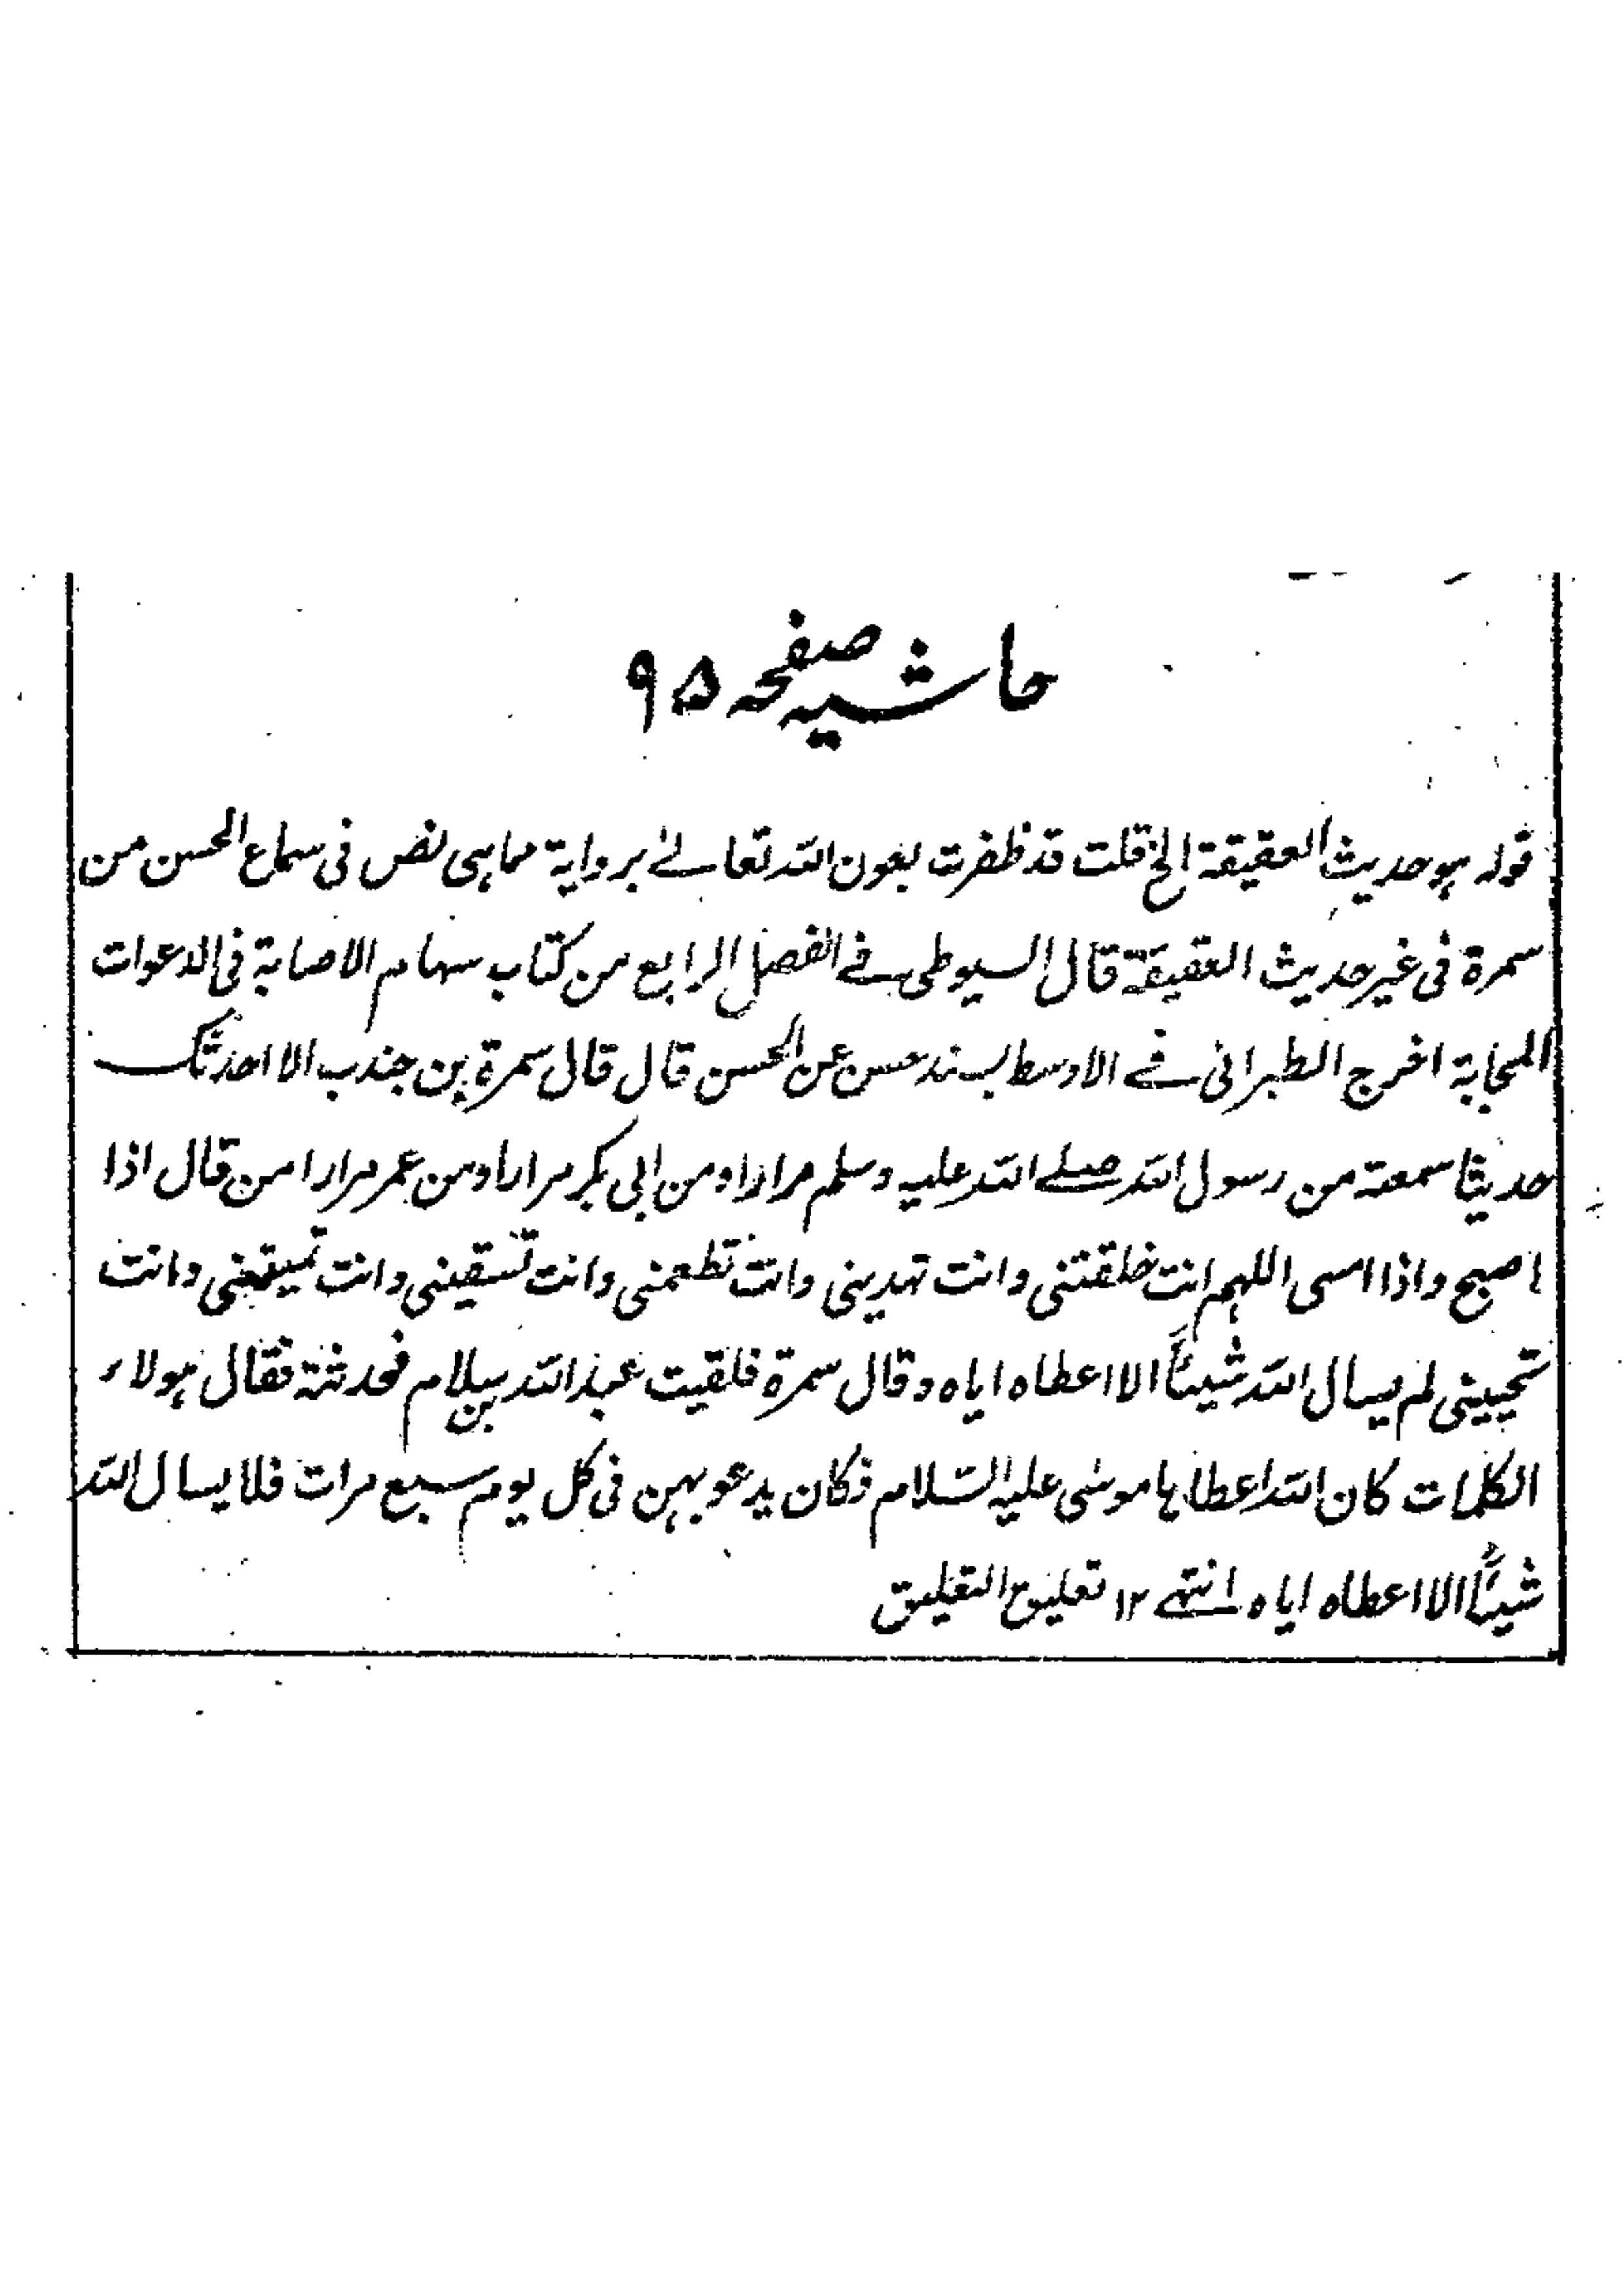 حاشیہ صفحہ ۹۵
قولہ ہو حدیث العقیقۃ الخ قلت قد ظفرت بعون اللہ تعالےٰ بروایۃ مما ہی نص فی سماع الحسن من
سمرۃ فی غیر حدیث العقیقۃ قال السیوطی فے الفصل الرابع من کتاب سہام الاصابۃ فی الدعوات
المجابۃ اخرج الطبرانی فے الاوسط بسند حسن عن الحسن قال قال سمرۃ بن جندب الا احدثک
حدیثا سمعتہ من رسول اللہ صلے اللہ علیہ وسلم مرارا و من ابی بکر مرارا و من عمر مرارا من قال اذا
اصبح و اذا امسی اللہم انت خلقتنی و انت تہدینی و انت تطعمنی و انت تسقینی و انت تمیتنی و انت
تحیینی لم یسال اللہ شیئاً الا اعطاہ ایاہ و قال سمرۃ فلقیت عبد اللہ بن سلام فحدثتہ فقال ہولاء
الکلمات کان اللہ اعطاہا موسٰی علیہ السّلام فکان یدعو بہن فی کل یوم سبع مرات فلا یسال اللہ
شیئاً الا اعطاہ ایاہ انتہے ۱۲ تعلیق التعلیق